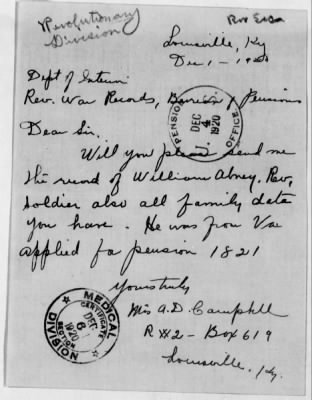 Revolutionary
Division
Louisville, Ky
Dec 1 - 1920
Dept of Interior
Rev. War Records, Bureau of Pensions
PENSION OFFICE
DEC
4
1920
Dear Sir.
Will you please send me
the record of William Abney, Rev.
soldier also all family data
you have. He was from Va
applied for pension 1821
Yours truly
Mrs A. D. Campbell
R#2 - Box 619
Louisville, Ky.
MEDICAL DIVISION
CERTIFICATE SECTION
DEC
6
1920